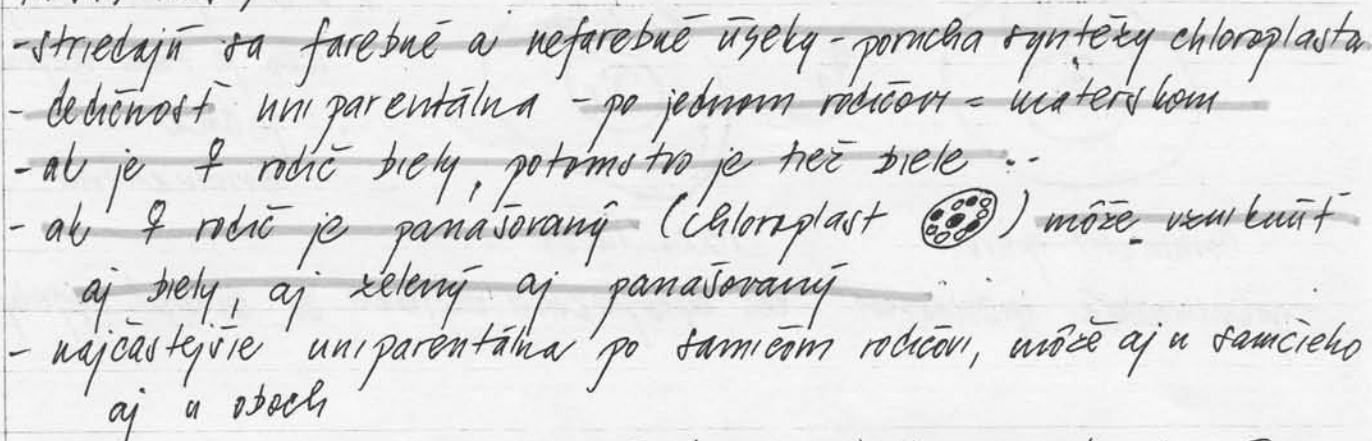 - striedajú sa farebné a nefarebné úseky - porucha syntézy chloroplasta
- dedičnosť uniparentálna - po jednom rodičovi = materskom
- ak je ♀ rodič biely, potomstvo je tiež biele
- ak ♀ rodič je panašovaný (chloroplast ) môže vzniknúť
aj biely, aj zelený aj panašovaný
- najčastejšie uniparentálna po samičom rodičovi, môže aj u samčieho
aj u oboch